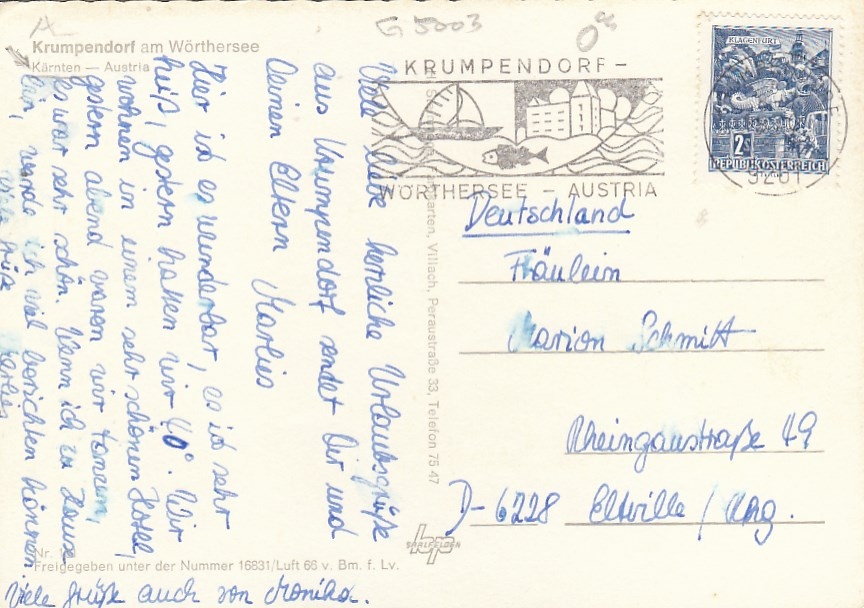 G 5003
Krumpendorf am Wörthersee
Kärnten – Austria
KRUMPENDORF –
WÖRTHERSEE – AUSTRIA
KLAGENFURT
2S
REPUBLIK ÖSTERREICH
9201
Viele liebe herzliche Urlaubsgrüße
aus Krumpendorf sendet Dir und
Deinen Eltern Marlies
Hier ist es wunderbar, es ist sehr
heiß, gestern hatten wir 40°. Wir
wohnen in einem sehr schönen Hotel,
gestern abend waren wir tanzen,
es war sehr schön. Wenn ich zu Hause
bin, werde ich viel berichten können
Viele Grüße Marlies
Viele Grüße auch von Monika.
Deutschland
Fräulein
Marion Schmitt
Rheingaustraße 49
D-6228 Eltville / Rhg.
garten, Villach, Peraustraße 33, Telefon 75 47
SAALFELDEN
Nr.
Freigegeben unter der Nummer 16831/Luft 66 v. Bm. f. Lv.